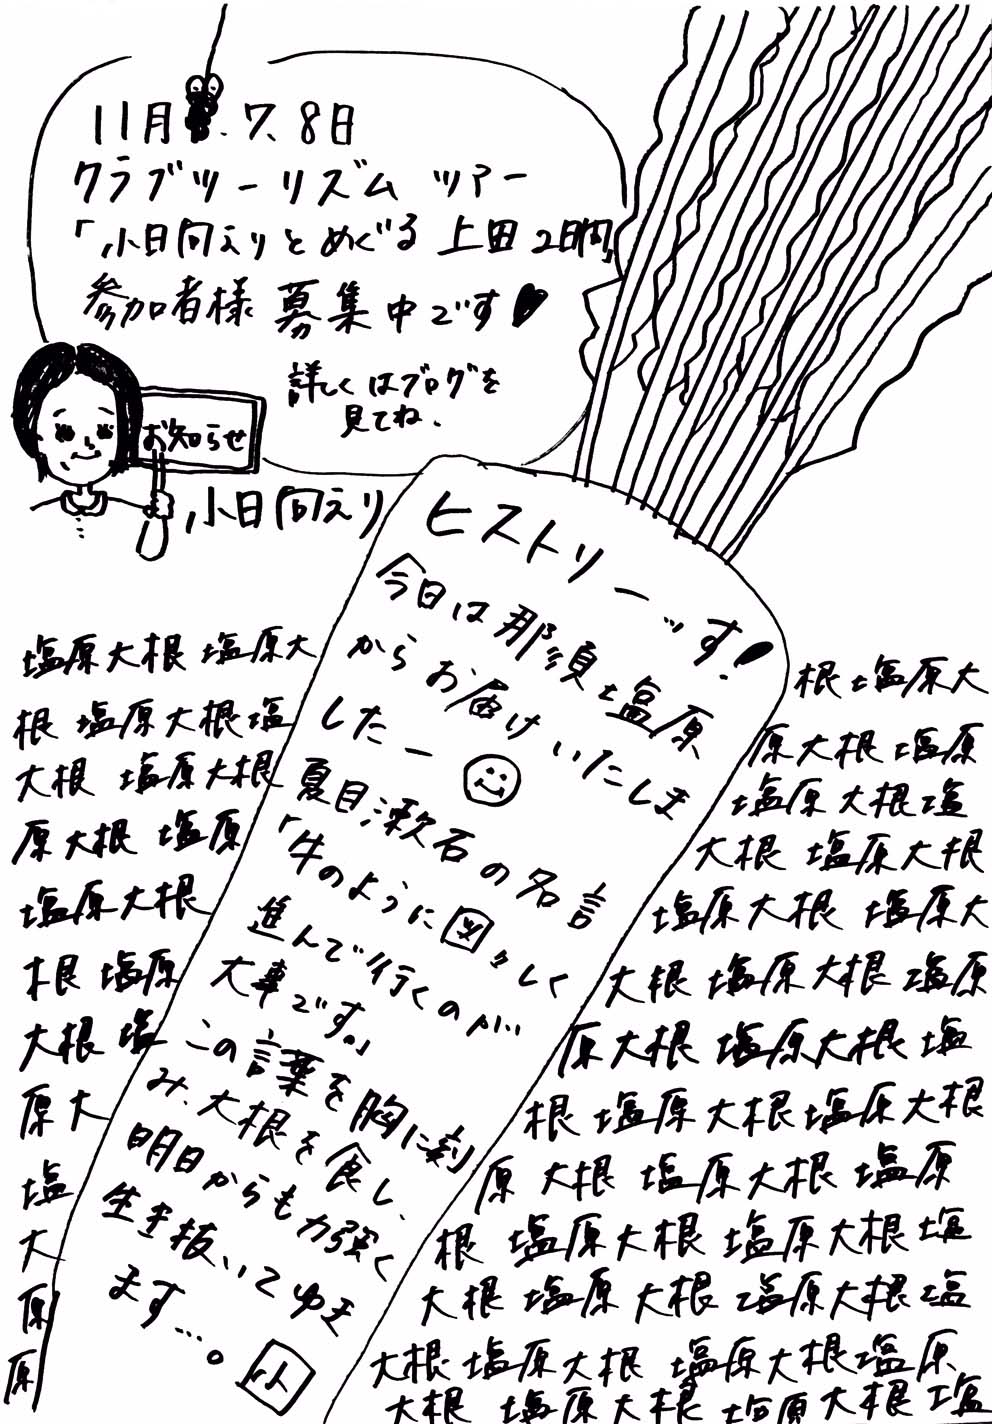 11月 . 7. 8日
クラブツーリズム ツアー
「小日向えりとめぐる 上田 2日間」
参加者様 募集中です
詳しくはブログを
見てね.
お知らせ
小日向えり
ヒストリーッす!
今日は那須塩原
からお届けいたしま
したー
夏目漱石の名言
「牛のように図々しく
進んで行くのが
大事です。」
この言葉を胸に刻
み、大根を食し、
明日からも力強く
生き抜いてゆき
ます…。
塩原大根 塩原大
根 塩原大根塩
大根 塩原大根
原大根 塩原
塩原大根
根 塩原
大根 塩
原大
塩
大
原
原
根 塩原大
原大根 塩原
塩原大根塩
大根 塩原大根
塩原大根 塩原大
大根 塩原大根 塩原
原大根 塩原大根 塩
根 塩原大根塩原大根
原 大根 塩原大根 塩原
根 塩原大根 塩原大根 塩
大根 塩原大根 塩原大根 塩
大根 塩原大根 塩原大根塩原
大根 塩原大根 塩原大根 塩